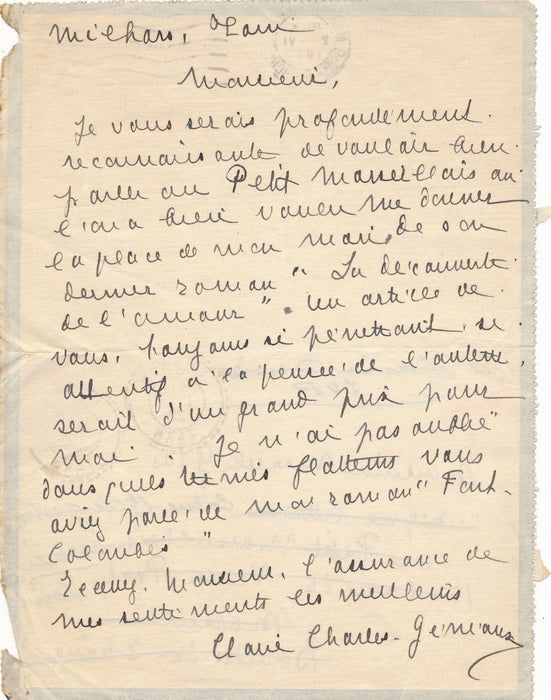 Milhars, Tarn
Monsieur,
Je vous serais profondément
reconnaissante de vouloir bien
parler au Petit Marseillais où
l'on a bien voulu me donner
la place de mon mari, de son
dernier roman "La découverte
de l'amour". Un article de
vous, toujours si pénétrant, si
attentif à la pensée de l'auteur,
serait d'un grand prix pour
moi. Je n'ai pas oublié
dans quels termes flatteurs vous
aviez parlé de mon roman "Font-
Colombes"
Veuillez, Monsieur, l'assurance de
mes sentiments les meilleurs
Claire Charles-Géniaux